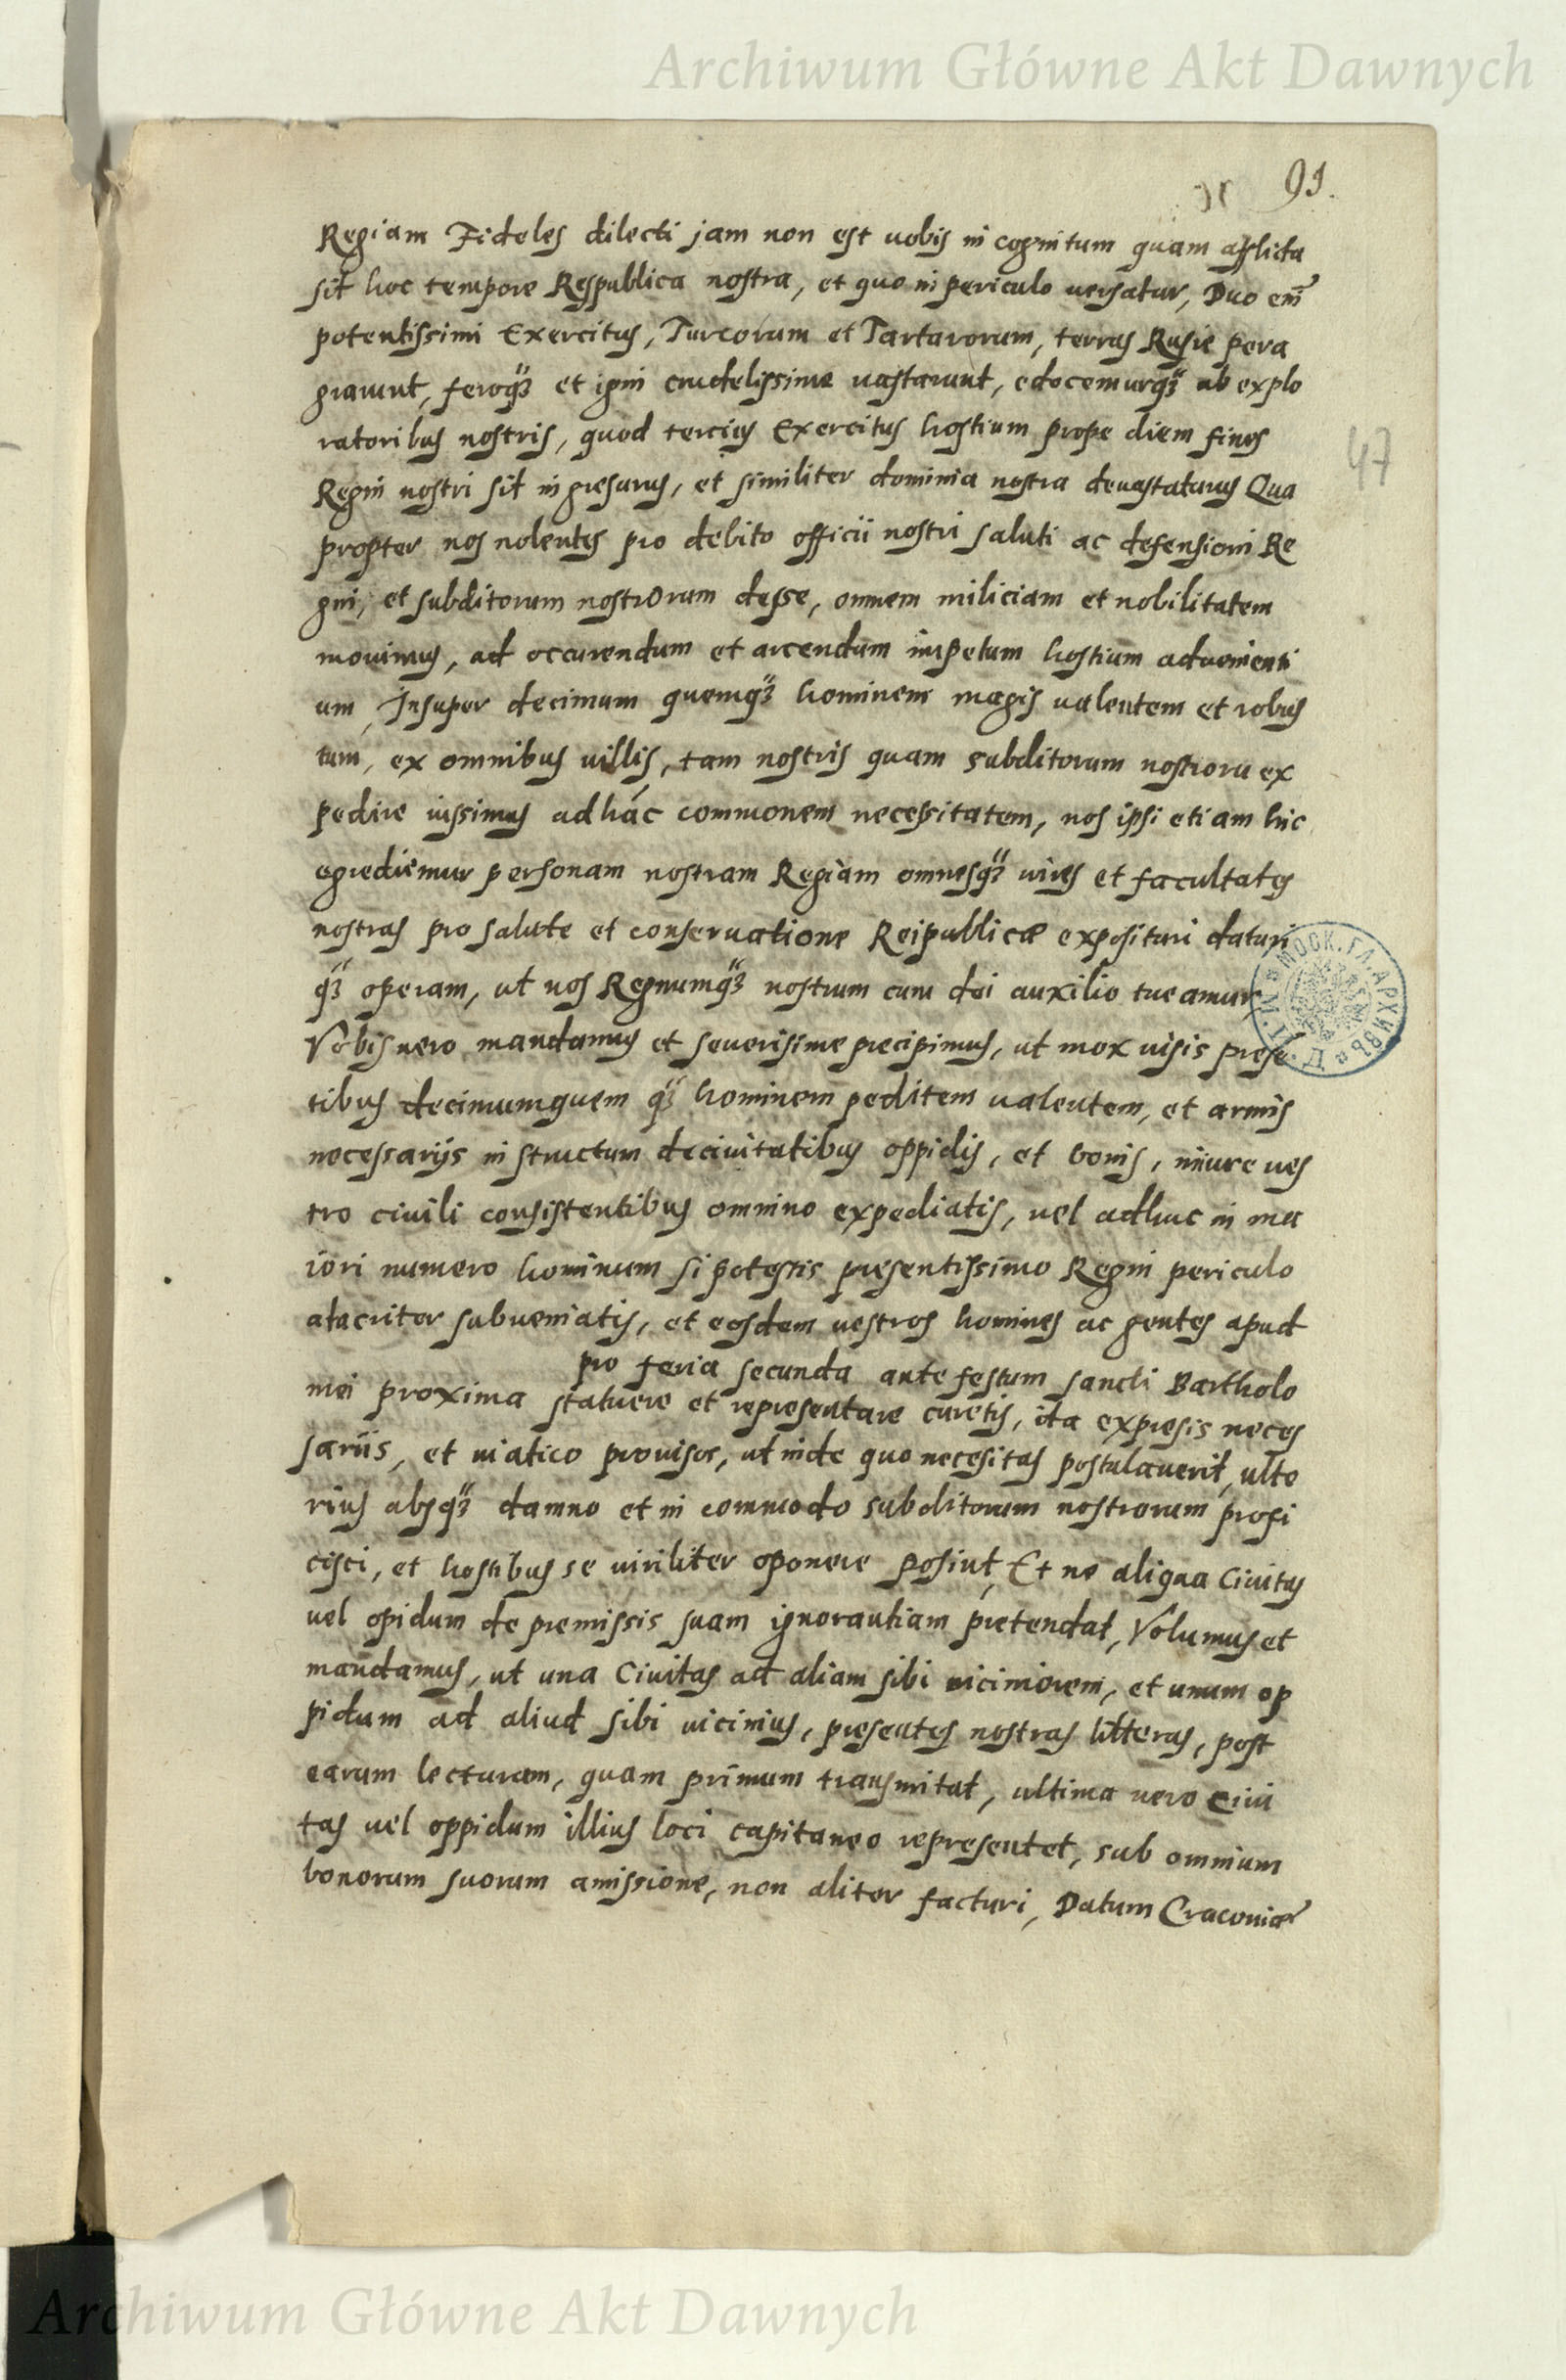 Archiwum Główne Akt Dawnych
91.
Regiam Fideles dilecti jam non est uobis in cognitum quam afflicta
sit hoc tempore Respublica nostra, et quo in periculo uersatur, Duo em̃
potentissimi Exercitus, Turcorum et Tartarorum, terras Rusie pera
grarunt, feroq₃ et igni crudelissime uastarunt, edocemurq₃ ab explo
ratoribus nostris, quod tercius Exercitus hostium prope diem fines
Regni nostri sit in gresurus, et similiter dominia nostra deuastaturus Qua
propter nos nolentes pro debito officii nostri saluti ac defensioni Re
gni, et subditorum nostrorum desse, omnem miliciam et nobilitatem
mouimus, ad occurendum et arcendum impetum hostium aduenienti
um, Insuper decimum quemq₃ hominem magis ualentem et robus
tum, ex omnibus uillis, tam nostris quam subditorum nostroru ex
pedire iussimus ad hác commonem necessitatem, nos ipsi etiam hic
egrediemur personam nostram Regiam omnesq₃ uires et facultates
nostras pro salute et conseruatione Reipublicæ exposituri daturi
q₃ operam, ut uos Regnumq₃ nostrum cum dei auxilio tueamur,
Vobis uero mandamus et seuerisime precipimus, ut mox uisis prese
tibus decimumquem q₃ hominem peditem ualentem, et armis
necessarijs in structum deciuitatibus oppidis, et bonis, iniure ues
tro ciuili consistentibus omnino expediatis, uel adhuc in ma
iori numero hominum si potestis presentissimo Regni periculo
alacriter subueniatis, et eosdem uestros homines ac gentes apud
pro feria secunda ante festum sancti Bartholo
mei proxima statuere et representare curetis, ita expresis neces
sariis, et uiatico prouisos, ut inde quo necesitas postulauerit, ulte
rius absq₃ damno et in commodo subditorum nostrorum profi
cisci, et hostibus se uiriliter oponere posint, Et ne aliqua Ciuitas
uel opidum de premissis suam ignorantiam pretendat, Volumus et
mandamus, ut una Ciuitas ad aliam sibi uiciniorem, et unum op
pidum ad aliud sibi uicinius, presentes nostras litteras, post
earum lecturam, quam primum transmitat, ultima uero Ciui
tas uel oppidum illius loci capitaneo representet, sub omnium
bonorum suorum amissione, non aliter facturi, Datum Cracouiæ
47
МОСК. ГЛ. АРХИВЪ
Archiwum Główne Akt Dawnych